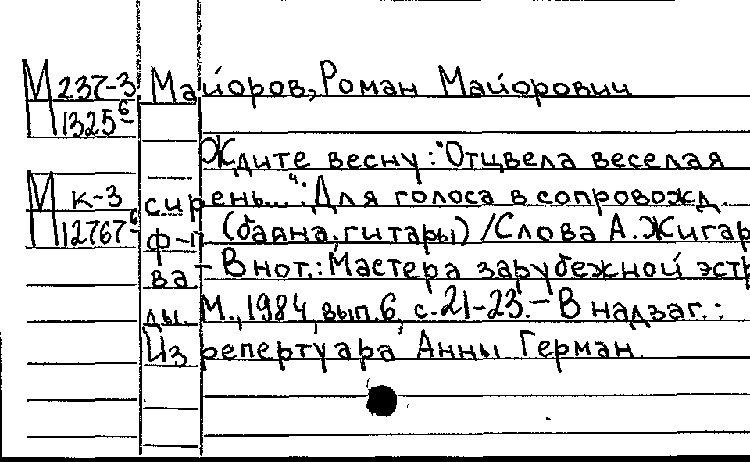 М 237-3 Майоров, Роман Майорович
1325б
Ждите весну: "Отцвела веселая
М к-3 сирень...": Для голоса в сопровожд.
12767б ф-п (баяна, гитары) / Слова А. Жигар
ва – В нот.: Мастера зарубежной эстр
ды. М., 1984, вып. 6, с. 21-23. – В надзаг.:
Из репертуара Анны Герман